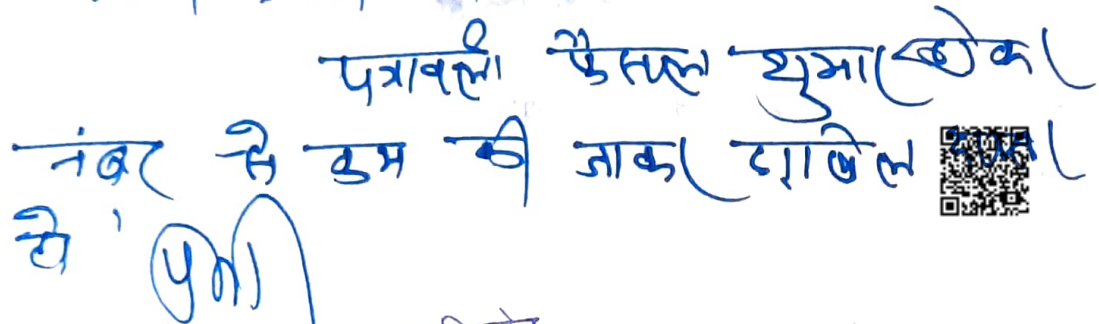 पत्रावली फैसल शुमार होकर
नंबर से कम की जाकर दाखिल दफ्तर
हो।